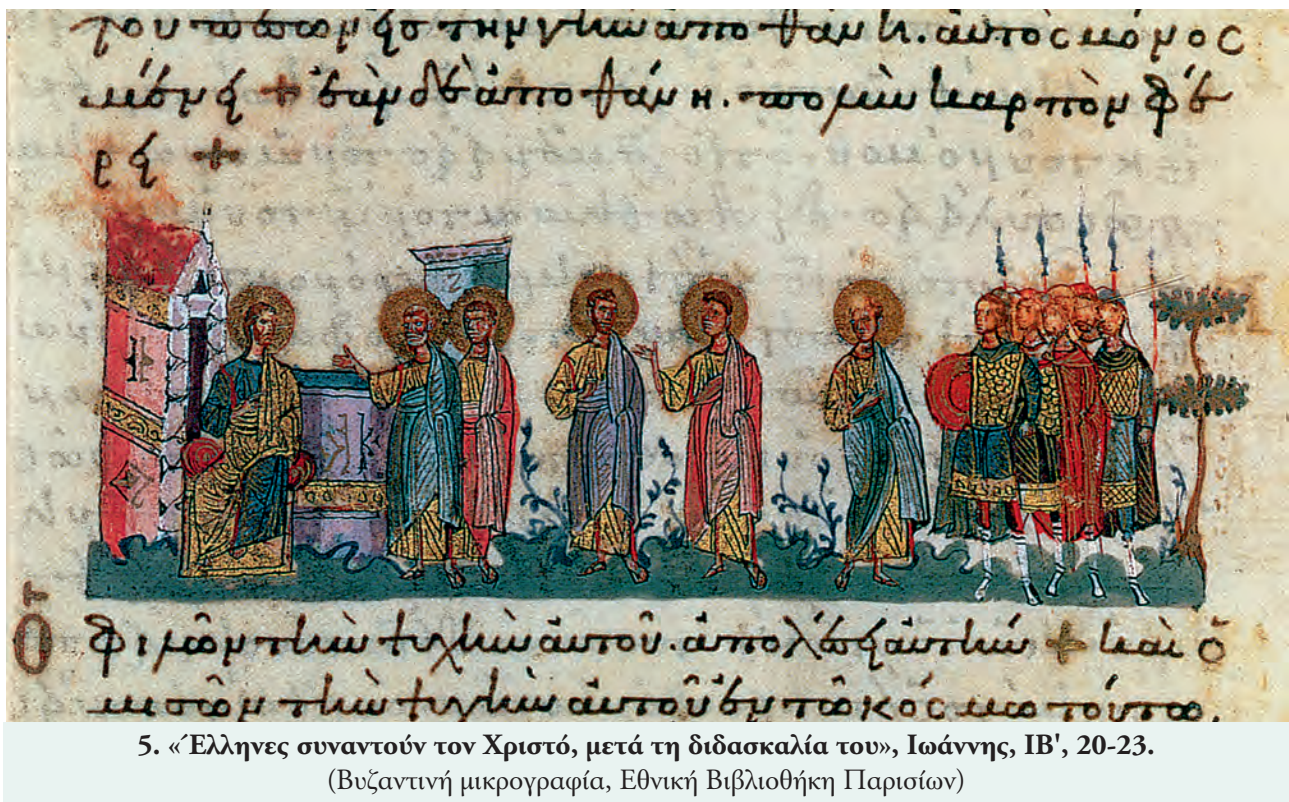 του πεσὼν εἰς τὴν γῆν ἀποθάνη. αὐτὸς μόνος
μένει + ἐὰν δὲ ἀποθάνη. πολὺν καρπὸν φέ
ρει +
Ὁ φιλῶν τὴν ψυχὴν αὐτοῦ. ἀπολέσει αὐτὴν + καὶ ὁ
μισῶν τὴν ψυχὴν αὐτοῦ ἐν τῶ κόσμω τούτω,
5. «Έλληνες συναντούν τον Χριστό, μετά τη διδασκαλία του», Ιωάννης, ΙΒ', 20-23.
(Βυζαντινή μικρογραφία, Εθνική Βιβλιοθήκη Παρισίων)